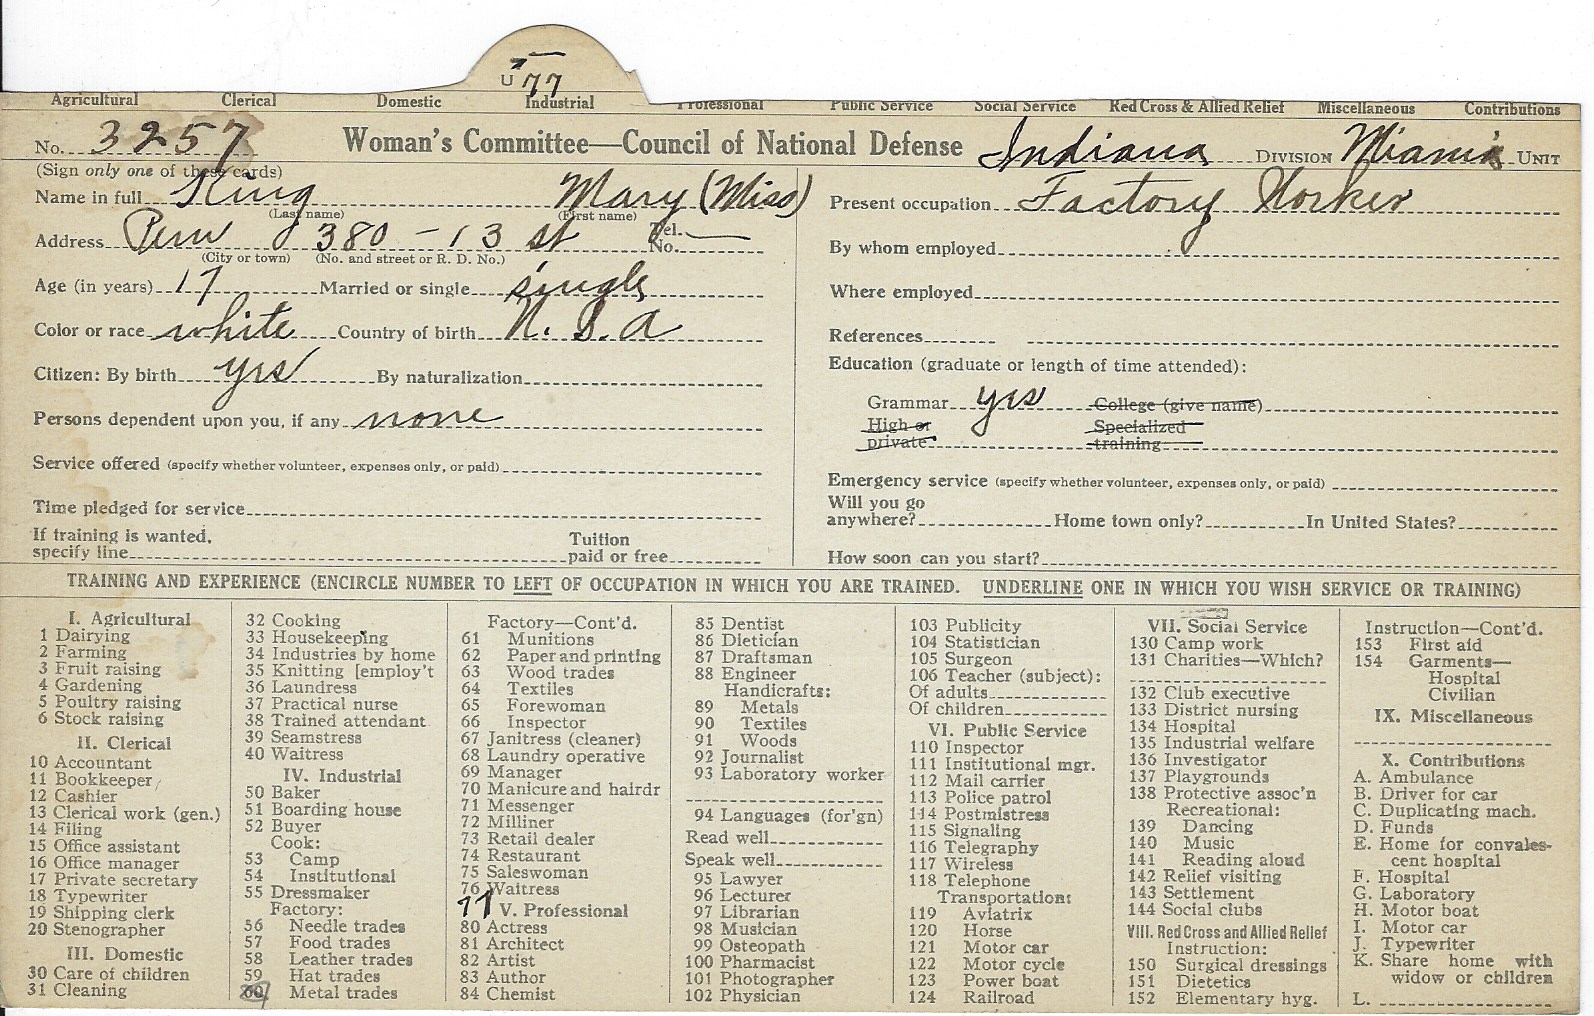 U 77
Agricultural Clerical Domestic Industrial Professional Public Service Social Service Red Cross & Allied Relief Miscellaneous Contributions
No. 3257 Woman's Committee—Council of National Defense Indiana DIVISION Miami UNIT
(Sign only one of these cards)
Name in full King Mary (Miss)
(Last name) (First name)
Address Peru 380 - 13 st Tel. No. —
(City or town) (No. and street or R. D. No.)
Age (in years) 17 Married or single single
Color or race white Country of birth U. S. A
Citizen: By birth yes By naturalization
Persons dependent upon you, if any none
Service offered (specify whether volunteer, expenses only, or paid)
Time pledged for service
If training is wanted, specify line Tuition paid or free
Present occupation Factory Worker
By whom employed
Where employed
References
Education (graduate or length of time attended):
Grammar yes College (give name)
High or private Specialized training
Emergency service (specify whether volunteer, expenses only, or paid)
Will you go anywhere? Home town only? In United States?
How soon can you start?
TRAINING AND EXPERIENCE (ENCIRCLE NUMBER TO LEFT OF OCCUPATION IN WHICH YOU ARE TRAINED. UNDERLINE ONE IN WHICH YOU WISH SERVICE OR TRAINING)
I. Agricultural
1 Dairying
2 Farming
3 Fruit raising
4 Gardening
5 Poultry raising
6 Stock raising
II. Clerical
10 Accountant
11 Bookkeeper
12 Cashier
13 Clerical work (gen.)
14 Filing
15 Office assistant
16 Office manager
17 Private secretary
18 Typewriter
19 Shipping clerk
20 Stenographer
III. Domestic
30 Care of children
31 Cleaning
32 Cooking
33 Housekeeping
34 Industries by home
35 Knitting [employ't
36 Laundress
37 Practical nurse
38 Trained attendant
39 Seamstress
40 Waitress
IV. Industrial
50 Baker
51 Boarding house
52 Buyer
Cook:
53 Camp
54 Institutional
55 Dressmaker
Factory:
56 Needle trades
57 Food trades
58 Leather trades
59 Hat trades
60 Metal trades
Factory—Cont'd.
61 Munitions
62 Paper and printing
63 Wood trades
64 Textiles
65 Forewoman
66 Inspector
67 Janitress (cleaner)
68 Laundry operative
69 Manager
70 Manicure and hairdr
71 Messenger
72 Milliner
73 Retail dealer
74 Restaurant
75 Saleswoman
76 Waitress
77 V. Professional
80 Actress
81 Architect
82 Artist
83 Author
84 Chemist
85 Dentist
86 Dietician
87 Draftsman
88 Engineer
Handicrafts:
89 Metals
90 Textiles
91 Woods
92 Journalist
93 Laboratory worker
94 Languages (for'gn)
Read well
Speak well
95 Lawyer
96 Lecturer
97 Librarian
98 Musician
99 Osteopath
100 Pharmacist
101 Photographer
102 Physician
103 Publicity
104 Statistician
105 Surgeon
106 Teacher (subject):
Of adults
Of children
VI. Public Service
110 Inspector
111 Institutional mgr.
112 Mail carrier
113 Police patrol
114 Postmistress
115 Signaling
116 Telegraphy
117 Wireless
118 Telephone
Transportation:
119 Aviatrix
120 Horse
121 Motor car
122 Motor cycle
123 Power boat
124 Railroad
VII. Social Service
130 Camp work
131 Charities—Which?
132 Club executive
133 District nursing
134 Hospital
135 Industrial welfare
136 Investigator
137 Playgrounds
138 Protective assoc'n
Recreational:
139 Dancing
140 Music
141 Reading aloud
142 Relief visiting
143 Settlement
144 Social clubs
VIII. Red Cross and Allied Relief
Instruction:
150 Surgical dressings
151 Dietetics
152 Elementary hyg.
Instruction—Cont'd.
153 First aid
154 Garments—
Hospital
Civilian
IX. Miscellaneous
X. Contributions
A. Ambulance
B. Driver for car
C. Duplicating mach.
D. Funds
E. Home for convales-
cent hospital
F. Hospital
G. Laboratory
H. Motor boat
I. Motor car
J. Typewriter
K. Share home with
widow or children
L.